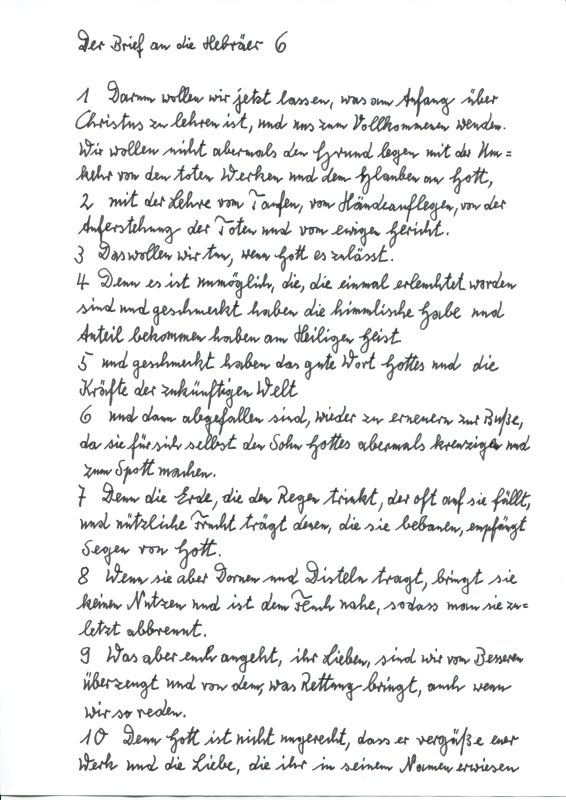 Der Brief an die Hebräer 6
1 Darum wollen wir jetzt lassen, was am Anfang über
Christus zu lehren ist, und uns zum Vollkommenen wenden.
Wir wollen nicht abermals den Grund legen mit der Um=
kehr von den toten Werken und dem Glauben an Gott,
2 mit der Lehre vom Taufen, vom Händeauflegen, von der
Auferstehung der Toten und vom ewigen Gericht.
3 Das wollen wir tun, wenn Gott es zulässt.
4 Denn es ist unmöglich, die, die einmal erleuchtet worden
sind und geschmeckt haben die himmlische Gabe und
Anteil bekommen haben am Heiligen Geist
5 und geschmeckt haben das gute Wort Gottes und die
Kräfte der zukünftigen Welt
6 und dann abgefallen sind, wieder zu erneuern zur Buße,
da sie für sich selbst den Sohn Gottes abermals kreuzigen und
zum Spott machen.
7 Denn die Erde, die den Regen trinkt, der oft auf sie fällt,
und nützliche Frucht trägt denen, die sie bebauen, empfängt
Segen von Gott.
8 Wenn sie aber Dornen und Disteln tragt, bringt sie
keinen Nutzen und ist dem Fluch nahe, sodass man sie zu=
letzt abbrennt.
9 Was aber euch angeht, ihr Lieben, sind wir vom Besseren
überzeugt und von dem, was Rettung bringt, auch wenn
wir so reden.
10 Denn Gott ist nicht ungerecht, dass er vergäße euer
Werk und die Liebe, die ihr in seinem Namen erwiesen